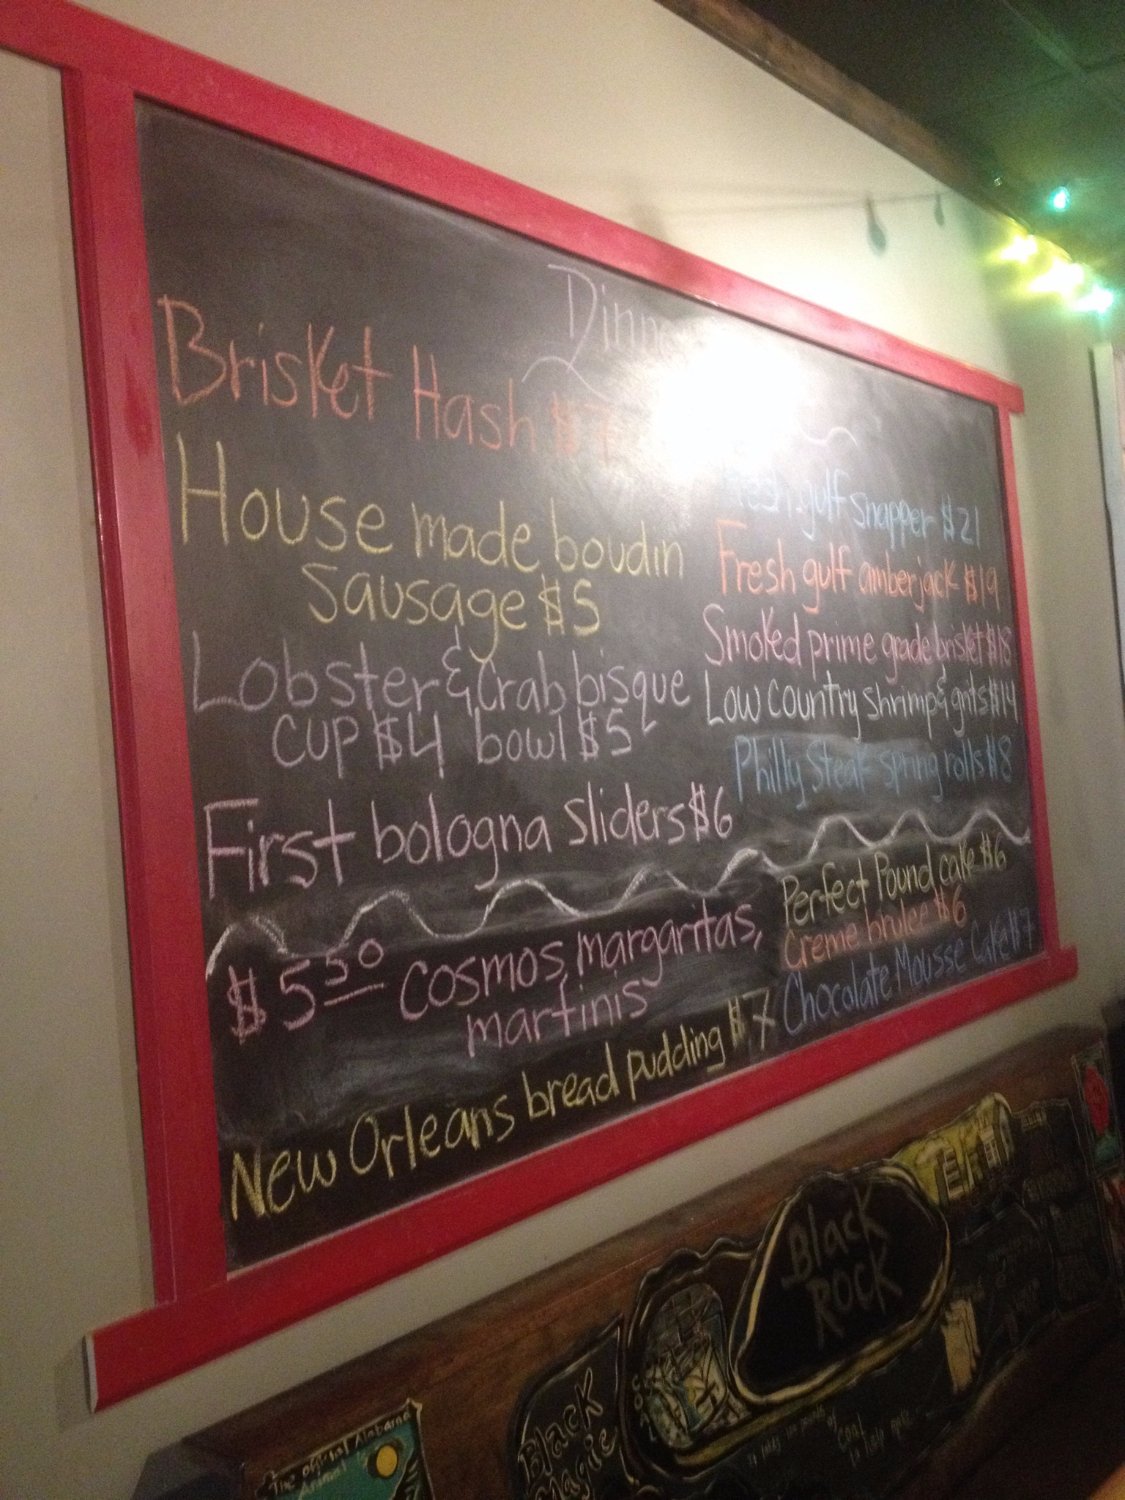 Brisket Hash $7
House made boudin
sausage $5
Lobster & crab bisque
cup $4 bowl $5
First bologna sliders $6
gulf snapper $21
Fresh gulf amberjack $19
Smoked prime grade brisket $18
Low country shrimp & grits $14
Philly Steak spring rolls $8
$5 50 cosmos, margaritas,
martinis
New Orleans bread pudding $7
Perfect Pound cake $6
creme brulee $6
Chocolate Mousse Cake $7
Black
Rock
Black
Magic
The original Alabama
Coal